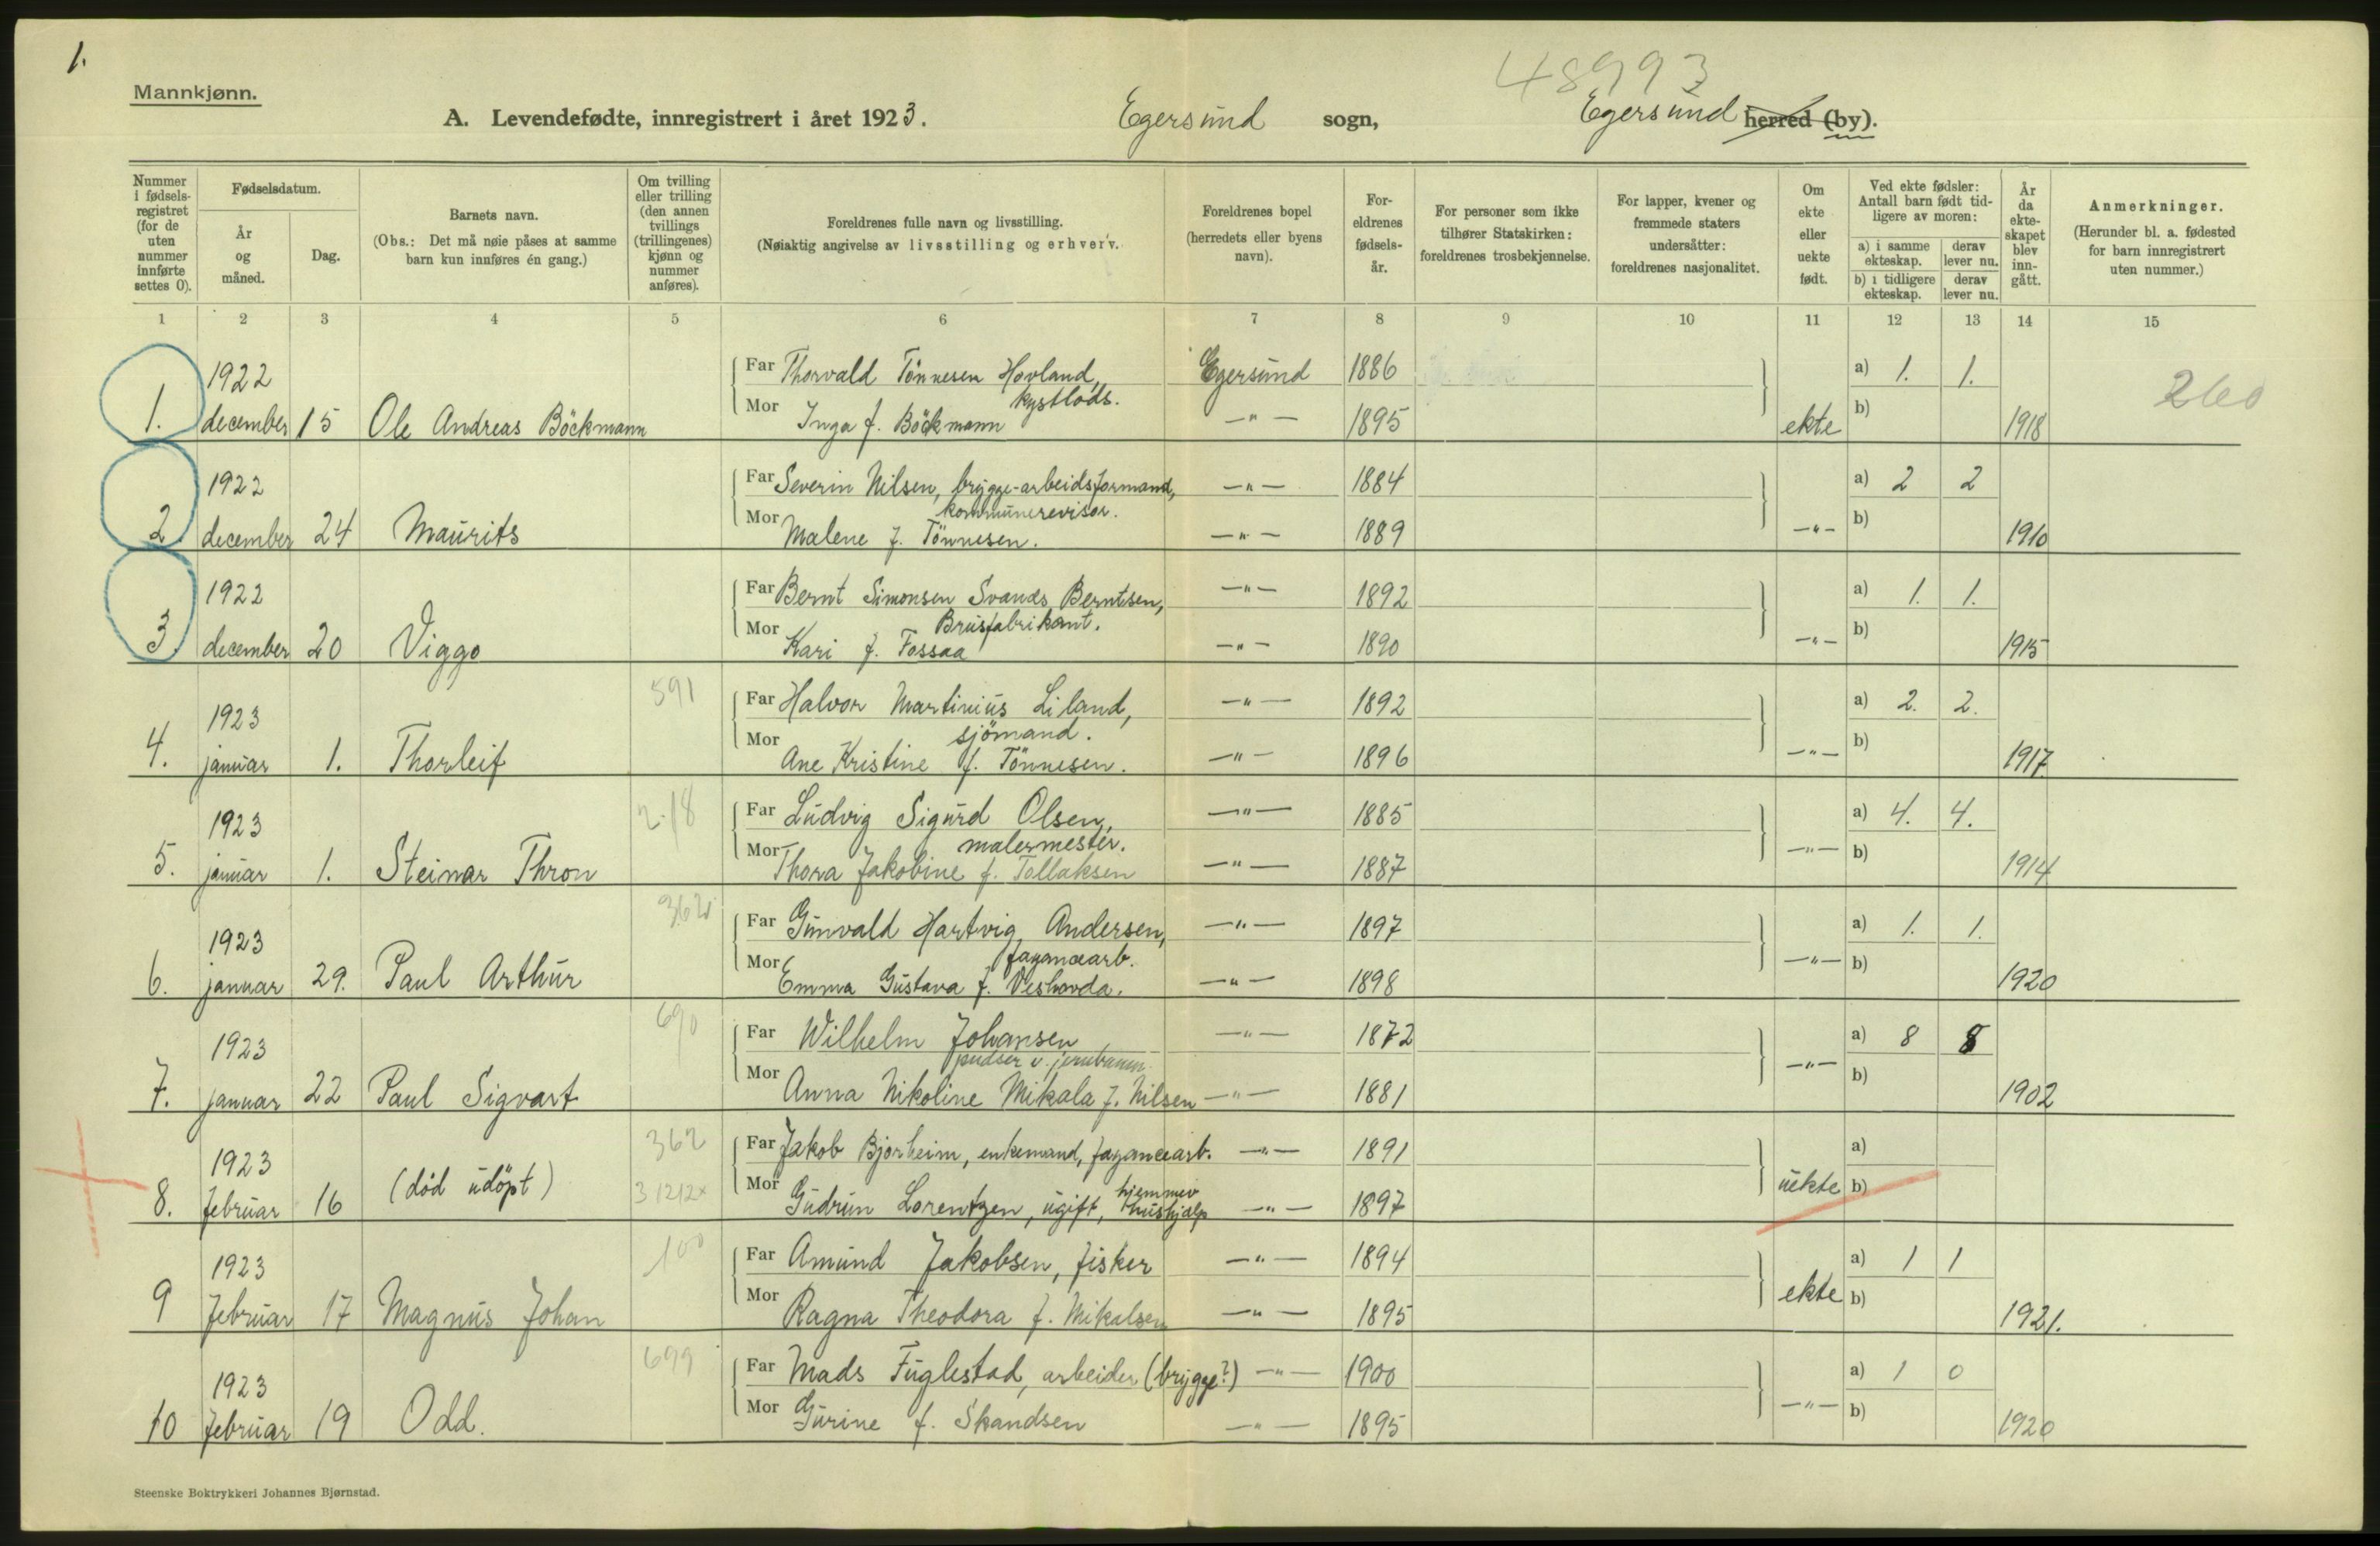 1.
48993
Mannkjønn.
A. Levendefødte, innregistrert i året 1923. Egersund sogn, Egersund herred (by).
Nummer i fødsels-registret (for de uten nummer innførte settes 0).
Fødselsdatum.
År og måned.
Dag.
Barnets navn.
(Obs.: Det må nøie påses at samme barn kun innføres én gang.)
Om tvilling eller trilling (den annen tvillings (trillingenes) kjønn og nummer anføres).
Foreldrenes fulle navn og livsstilling.
(Nøiaktig angivelse av livsstilling og erhverv.
Foreldrenes bopel (herredets eller byens navn).
For-eldrenes fødsels-år.
For personer som ikke tilhører Statskirken: foreldrenes trosbekjennelse.
For lapper, kvener og fremmede staters undersåtter: foreldrenes nasjonalitet.
Om ekte eller uekte født.
Ved ekte fødsler: Antall barn født tid-ligere av moren:
a) i samme ekteskap.
derav lever nu.
b) i tidligere ekteskap.
derav lever nu.
År da ekte-skapet blev inn-gått.
Anmerkninger.
(Herunder bl. a. fødested for barn innregistrert uten nummer.)
1 2 3 4 5 6 7 8 9 10 11 12 13 14 15
1922 Far Thorvald Tönnesen Hovland, Egersund 1886 a) 1. 1. 260
kystlods.
1. december 15 Ole Andreas Böckmann Mor Inga f. Böckmann —"— 1895 ekte b) 1918
1922 Far Severin Nilsen, brygge-arbeidsformand, —"— 1884 a) 2 2
kommunerevisor.
2. december 24 Maurits Mor Malene f. Tönnesen. —"— 1889 —"— b) 1910
1922 Far Bernt Simonsen Svanes Berntsen, —"— 1892 a) 1. 1.
Brusfabrikant.
3. december 20 Viggo Mor Kari f. Fossaa —"— 1890 —"— b) 1915
1923 591 Far Halvor Martinius Liland, —"— 1892 a) 2. 2.
sjömand.
4. januar 1. Thorleif Mor Ane Kristine f. Tönnesen. —"— 1896 —"— b) 1917
1923 218 Far Ludvig Sigurd Olsen, —"— 1885 a) 4. 4.
malermester.
5. januar 1. Steinar Thron Mor Thora Jakobine f. Tollaksen —"— 1887 —"— b) 1914
1923 362 Far Gunvald Hartvig Andersen, —"— 1897 a) 1. 1.
fayancearb.
6. januar 29. Paul Arthur Mor Emma Gustava f. Veshovda. —"— 1898 —"— b) 1920
1923 690 Far Wilhelm Johansen, —"— 1872 a) 8 8
pudser v. jernbanen.
7. januar 22 Paul Sigvart Mor Anna Nikoline Mikala f. Nilsen —"— 1881 —"— b) 1902
1923 362 Far Jakob Bjorheim, enkemand, fayancearb. —"— 1891 a)
8. februar 16 (död udöpt) Mor Gudrun Lorentzen, ugift, hushjælp —"— 1897 uekte b)
1923 100 Far Amund Jakobsen, fisker —"— 1894 a) 1 1
9 februar 17 Magnus Johan Mor Ragna Theodora f. Mikalsen —"— 1895 ekte b) 1921.
1923 699 Far Mads Fuglestad, arbeider (brygge?) —"— 1900 a) 1 0
10 februar 19 Odd. Mor Gurine f. Skandsen —"— 1895 —"— b) 1920
Steenske Boktrykkeri Johannes Bjørnstad.